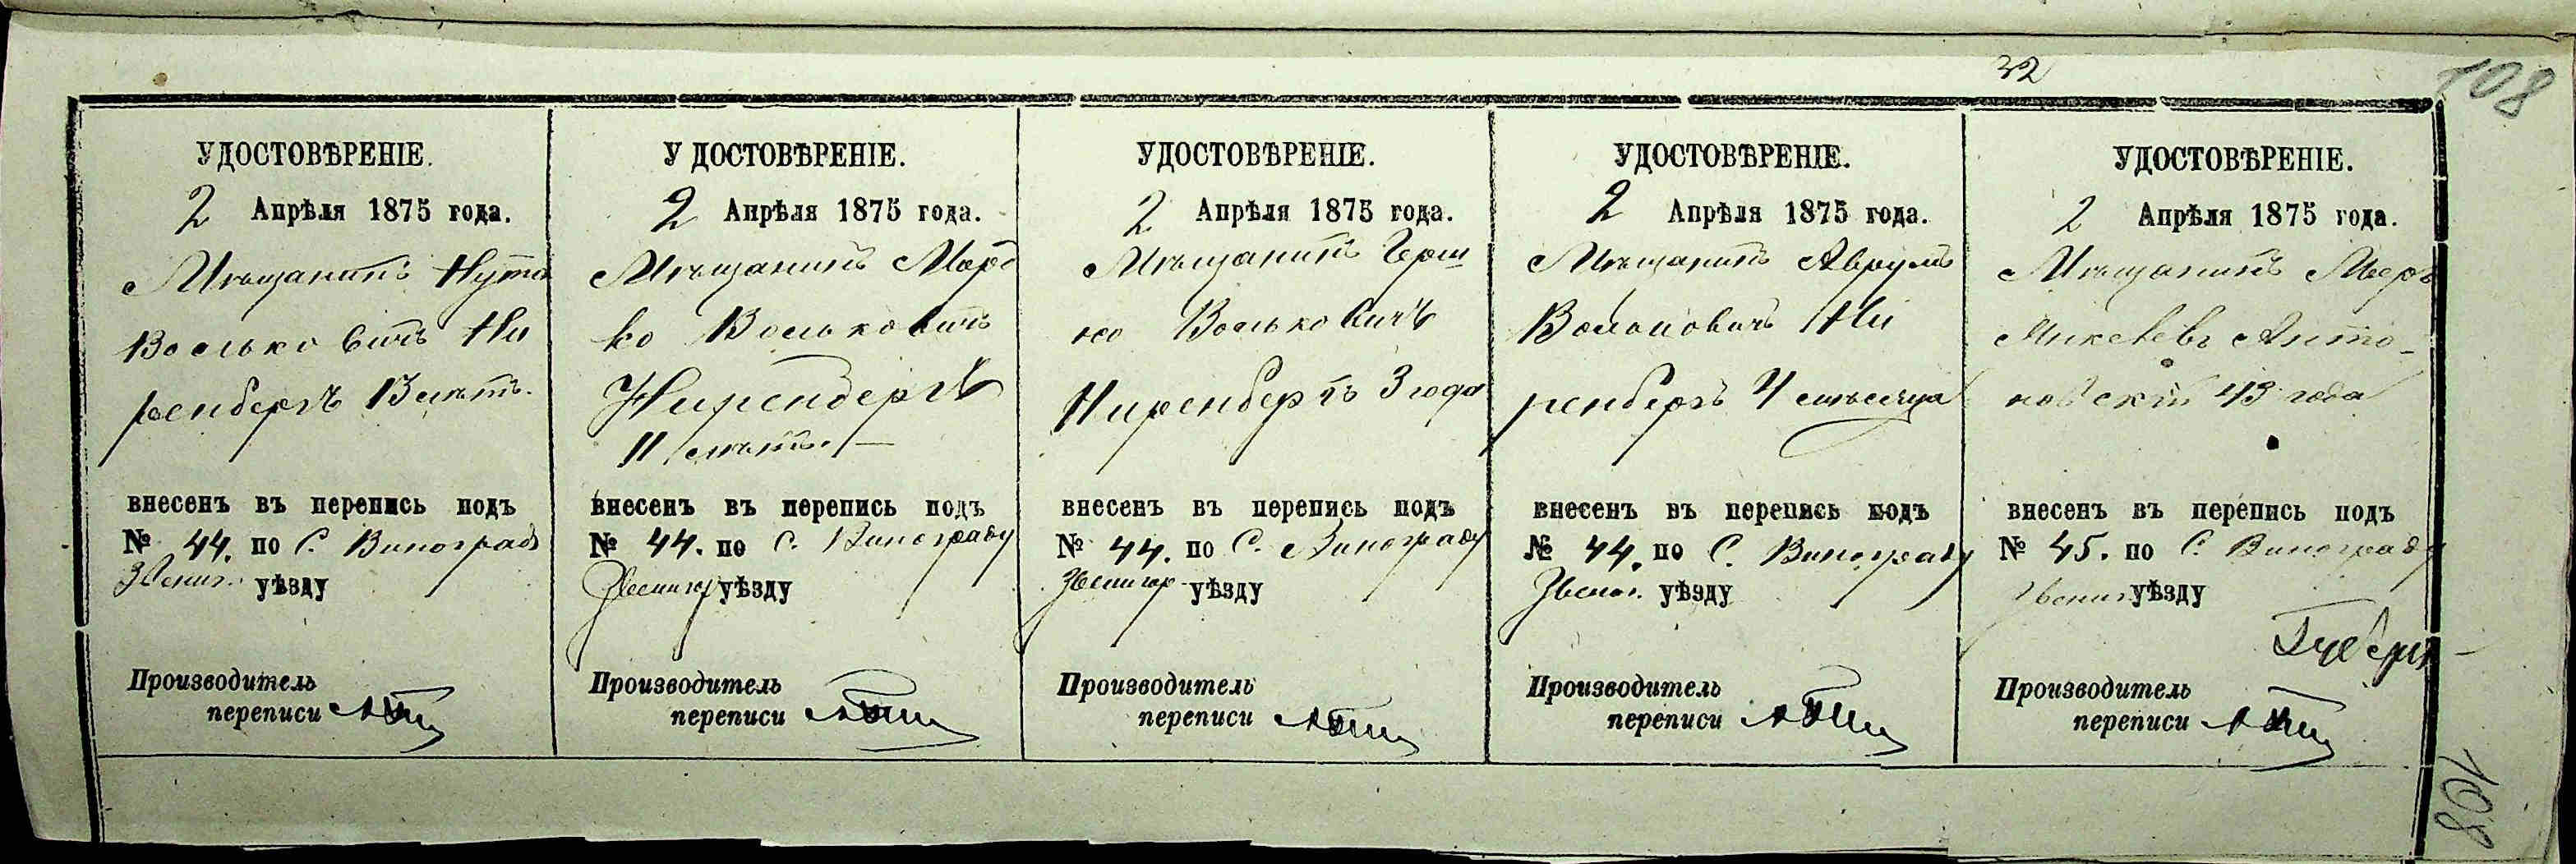 32
108
УДОСТОВѢРЕНІЕ.
2 Апрѣля 1875 года.
Мѣщанинъ Нута
Волько вичъ Ни
ренбергъ 13 лѣтъ.
внесенъ въ перепись подъ
№ 44. по С. Винограду
Звениг. уѣзду
Производитель
переписи
УДОСТОВѢРЕНІЕ.
2 Апрѣля 1875 года.
Мѣщанинъ Морд
ко Волькович
Ниренбергъ
11 лѣтъ. —
внесенъ въ перепись подъ
№ 44. по С. Винограду
Звенигор уѣзду
Производитель
переписи
УДОСТОВѢРЕНІЕ.
2 Апрѣля 1875 года.
Мѣщанинъ Герш
ко Волько вичъ
Ниренбергъ 3 года
внесенъ въ перепись подъ
№ 44. по С. Винограду
Звенигор уѣзду
Производитель
переписи
УДОСТОВѢРЕНІЕ.
2 Апрѣля 1875 года.
Мѣщанинъ Аврумъ
Ни
ренбергъ 4 мѣсяца
внесенъ въ перепись подъ
№ 44. по С. Винограду
Звениг. уѣзду
Производитель
переписи
УДОСТОВѢРЕНІЕ.
2 Апрѣля 1875 года.
Мѣщанинъ
Анто-
новскій 43 года
внесенъ въ перепись подъ
№ 45. по С. Винограду
Звениг. уѣзду
Производитель
переписи
108